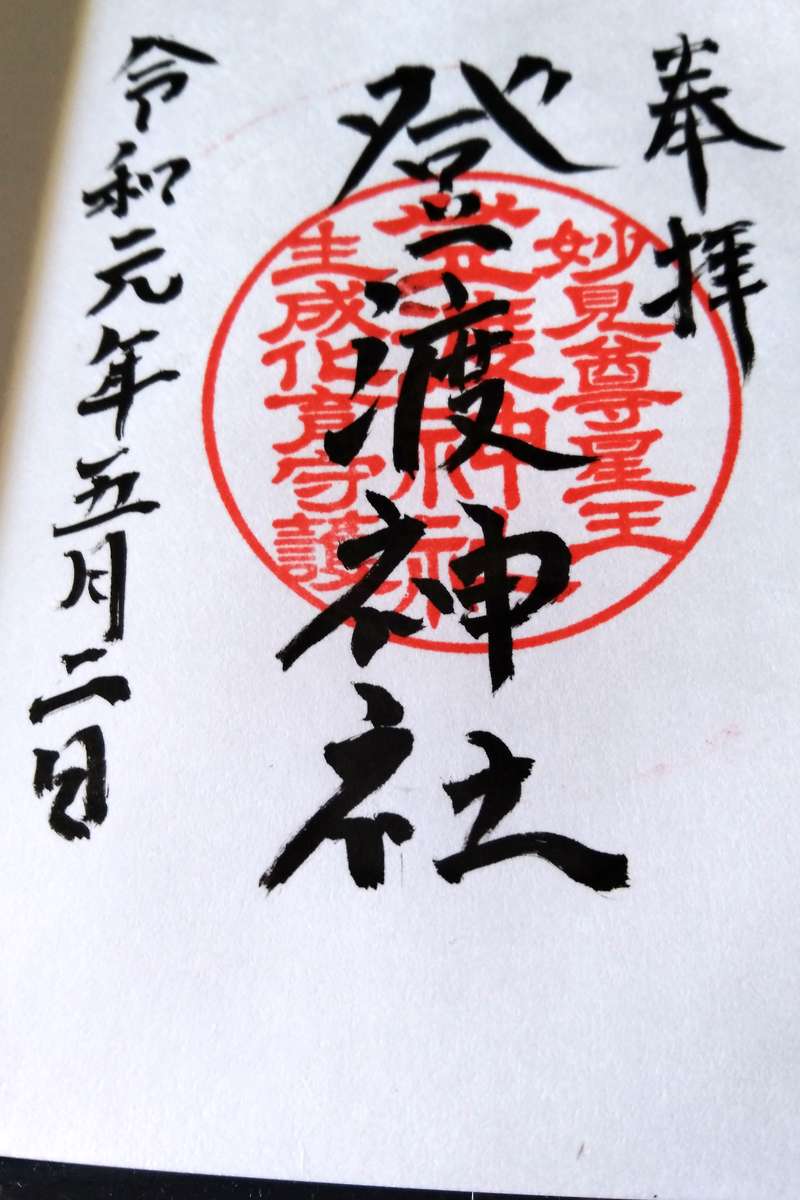 奉拝
登渡神社
令和元年五月二日
妙見尊星王
登渡神社
生成化育守護